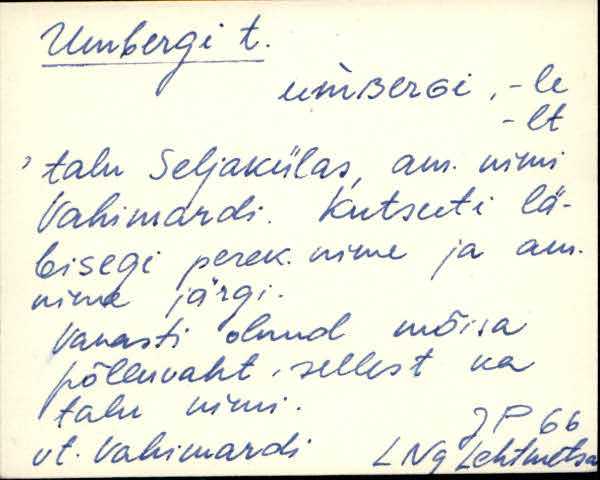 Umbergi t.
um̀BERGi, -le
-lt
talu Seljakülas, am. nimi
Vahimardi. Kutsuti lä-
bisegi perek. nime ja am.
nime järgi.
Vanasti olnud mõisa
põlluvaht, sellest ka
talu nimi.
vt. Vahimardi
JP 66
LNg Lehtmetsa